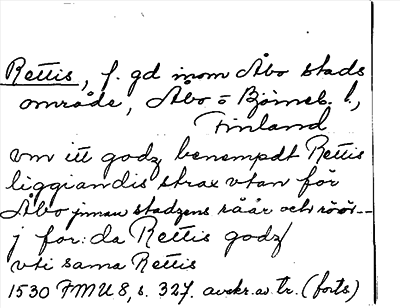 Rettis, f. gd inom Åbo stads
område, Åbo o Björneb. l.,
Finland
vm itt godz benempdt Rettis
liggiandis strax vtan för
Åbo jnnan stadzens råår och röör--
j for:da Rettis godz/
vti sama Rettis
1530 FMU 8, s. 327. avskr. av tr. (forts)